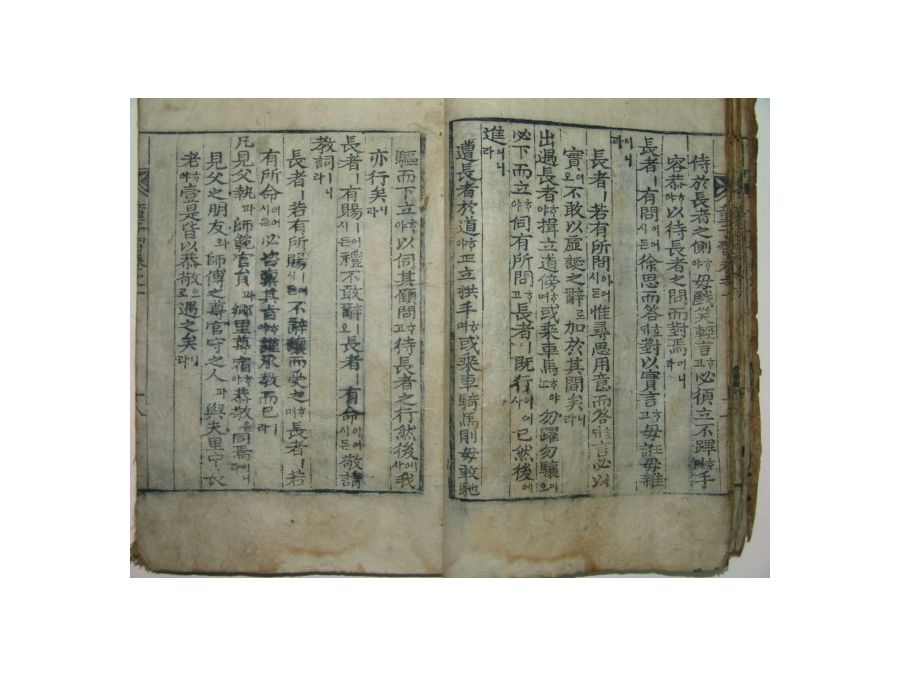 侍於長者之側ᄒᆞ야毋戱笑輕言ᄒᆞ고必禎立不蹕ᄒᆞ며手
容恭ᄒᆞ야以待長者之問而對焉이니라
長者ㅣ有問이어시든徐思而答호ᄃᆡ對以實言ᄒᆞ고毋誑毋雜
이니라
長者ㅣ若有所問이어시든惟尋思用意而答호ᄃᆡ言必以
實이오不敢以虛誕之辭로加於其間矣니라
出遇長者ᄒᆞ야揖立道傍ᄒᆞ며或乘車馬ᄒᆞ야勿躍勿驤이오
必下而立ᄒᆞ야伺有所問ᄒᆞ고長者ㅣ旣行이어사已然後에
進이니라
遭長者於道ᄒᆞ야正立拱手ᄒᆞ며或乘車騎馬則毋敢馳
驅而下立ᄒᆞ야以伺其顧問ᄒᆞ고待長者之行然後에사我
亦行矣니라
長者ㅣ有賜ㅣ어시든禮不敢辭ㅣ오長者ㅣ有命이어시든敬請
教詞ㅣ니라
長者ㅣ若有所賜ㅣ어시든不辭讓而受之ᄒᆞ며長者ㅣ若
有所命이어시든必皆稟其旨ᄒᆞ야謹承教而已니라
凡見父執과師範官員과鄕里尊宿ᄒᆞ야恭敬을同焉이니라
見父之朋友와師傅之尊官守之人과與夫里中長
老ᄒᆞ야壹是皆以恭敬으로遇之矣니라